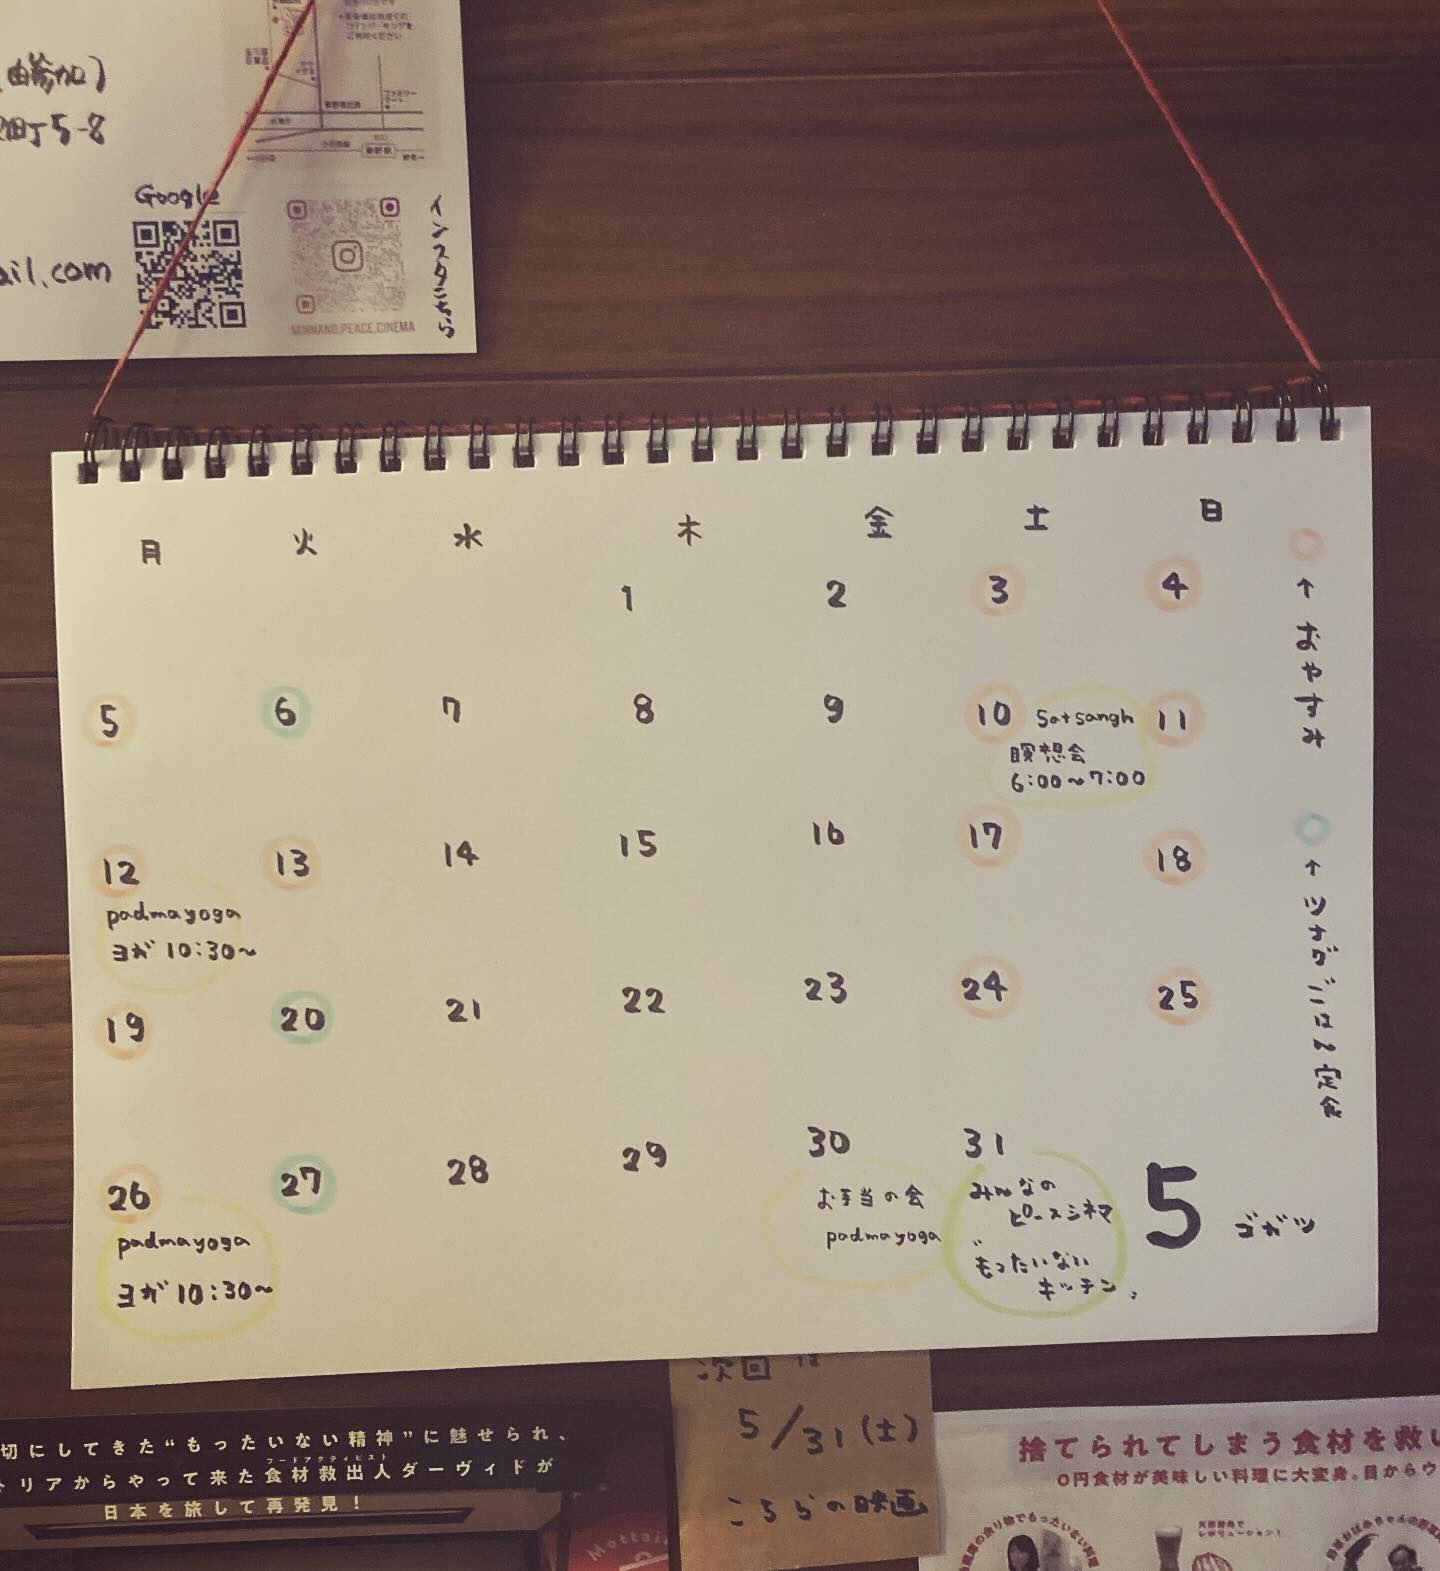 由
町5-8
Google
ail.com
インスタこちら
PEACE.CINEMA
月 火 水 木 金 土 日
1 2 3 4
5 6 7 8 9 10 11
satsangh
瞑想会
6:00~7:00
12 13 14 15 16 17 18
padmayoga
ヨガ 10:30~
19 20 21 22 23 24 25
26 27 28 29 30 31
padmayoga
ヨガ 10:30~
お手当の会
padmayoga
みんなの
ピースシネマ
"もったいない
キッチン"
5 ゴガツ
↑おやすみ
↑ツナグごはん定食
次回は
5/31(土)
こちらの映画
切にしてきた“もったいない精神”に魅せられ、
フードアクティビスト
トリアからやって来た食材救出人ダーヴィドが
日本を旅して再発見!
Mottai
捨てられてしまう食材を救い
0円食材が美味しい料理に大変身。目からウ